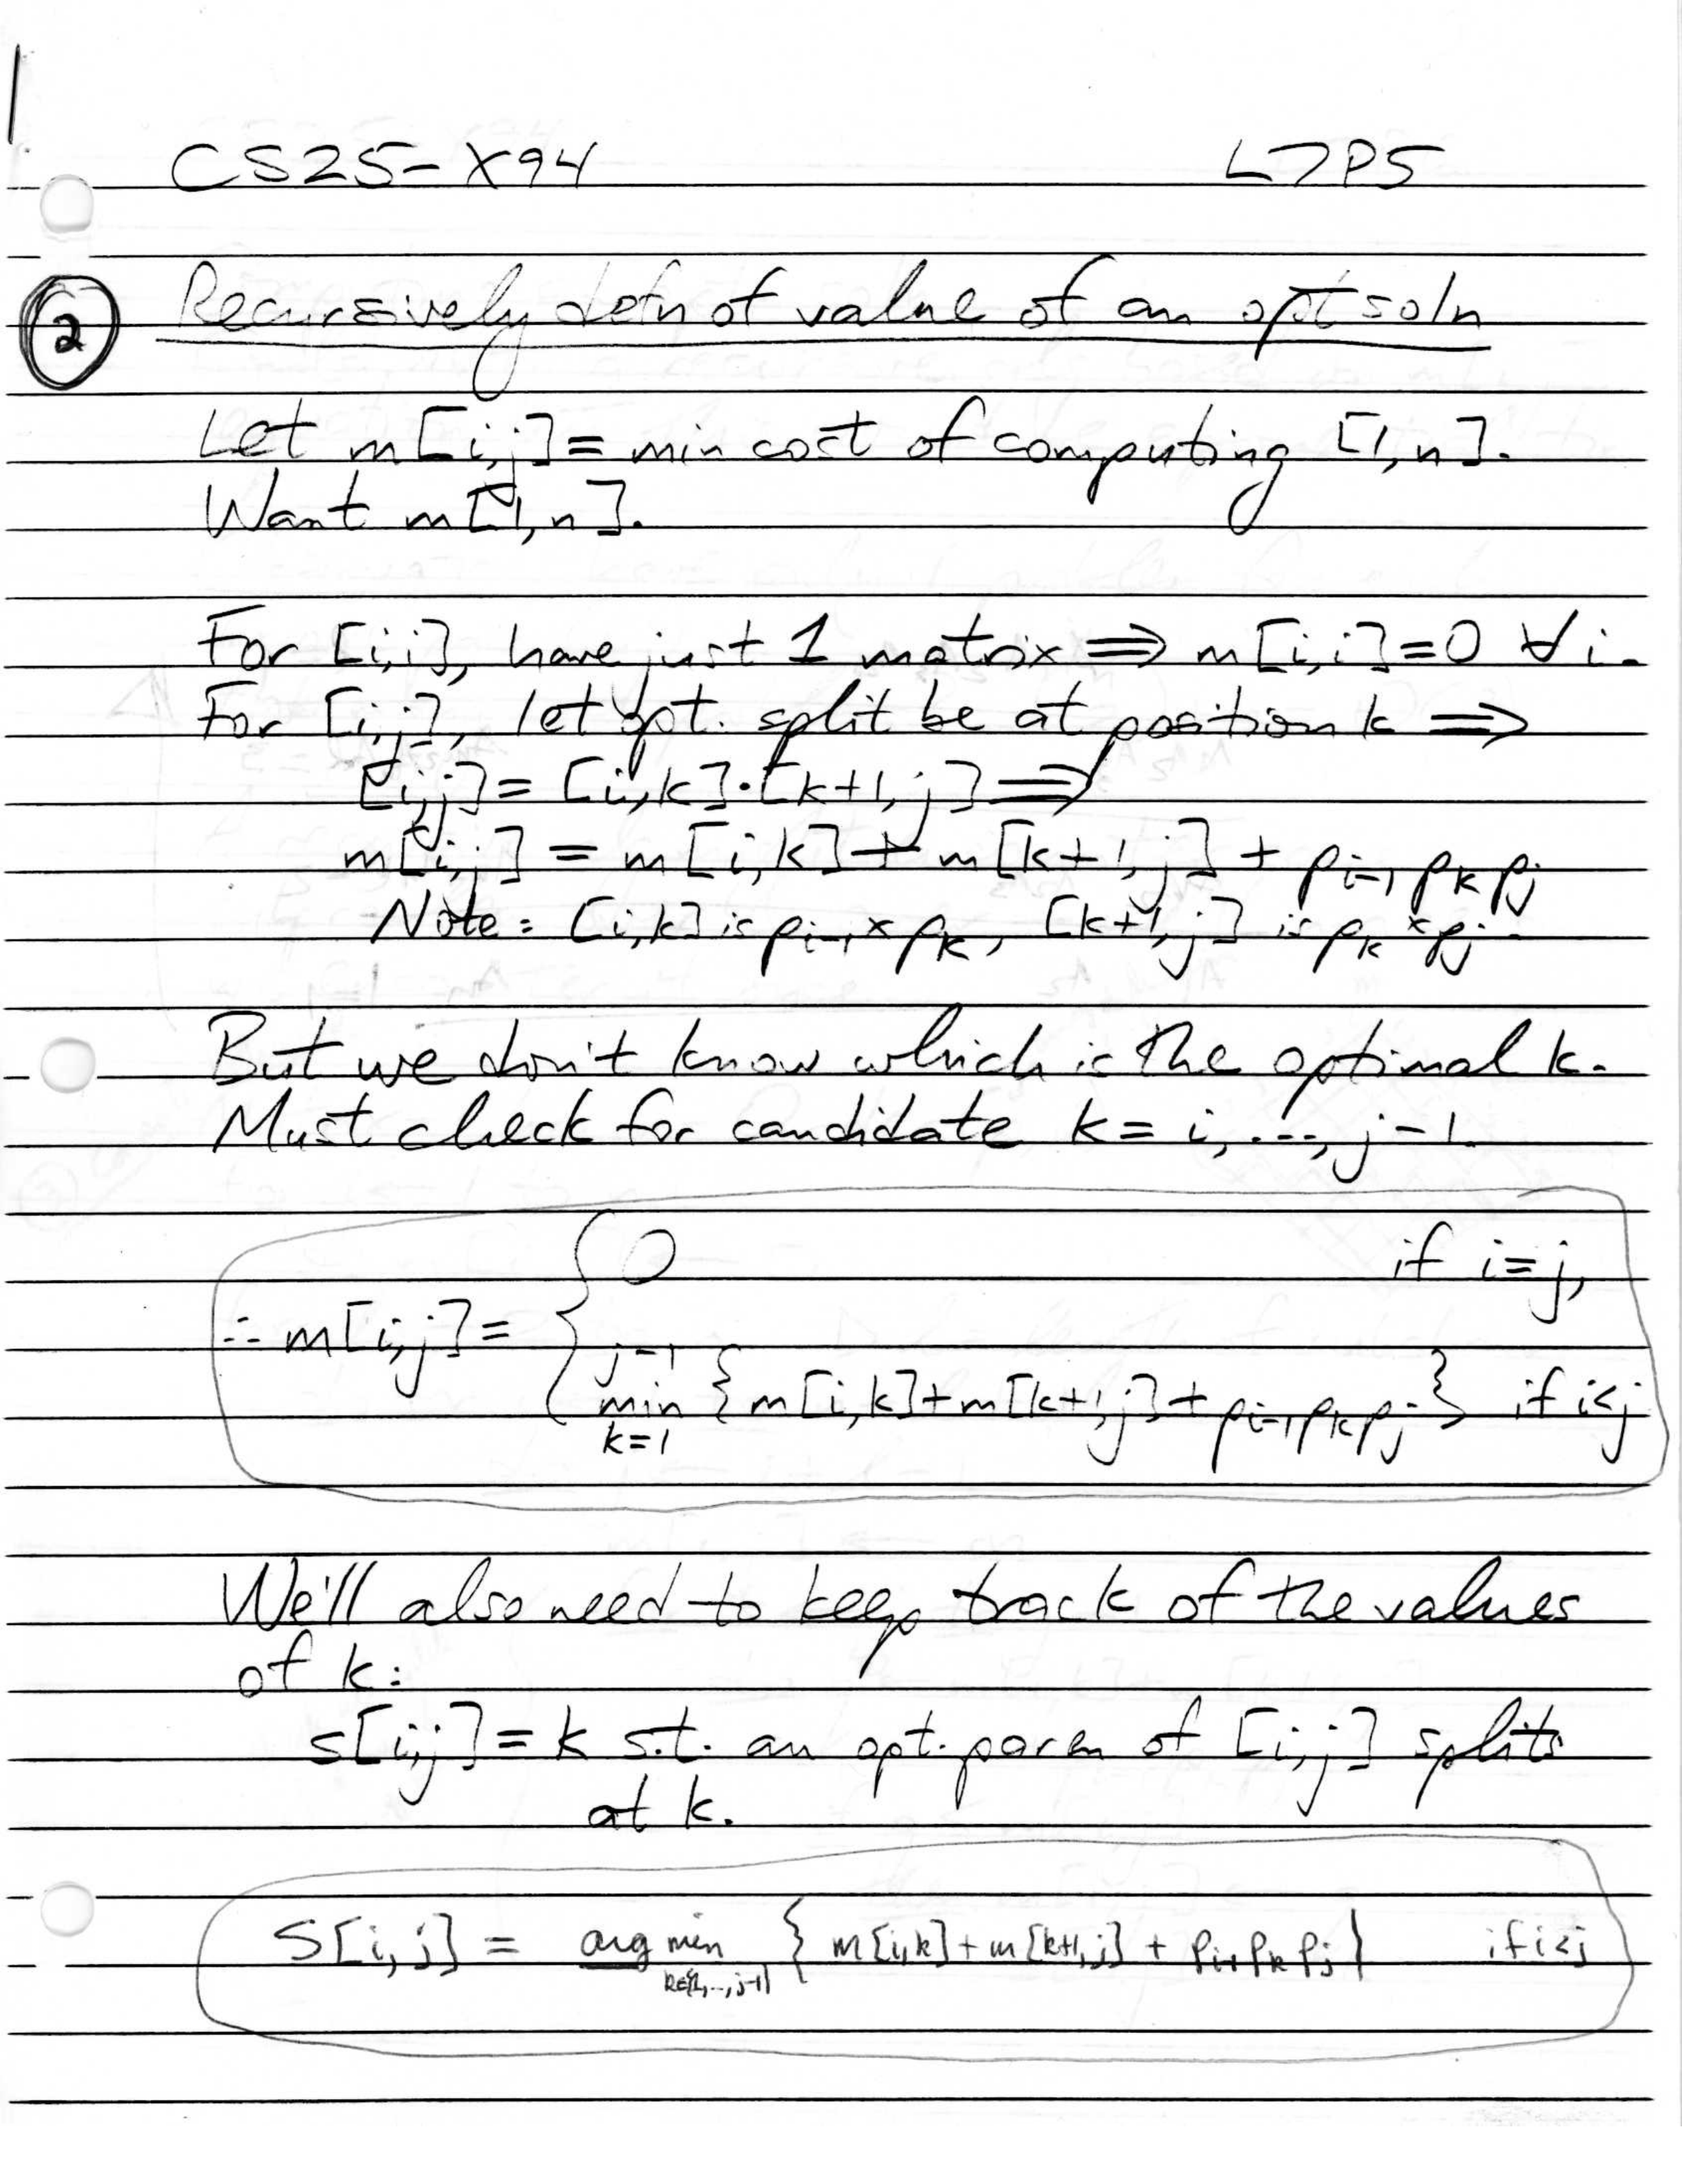 CS25-X94 L7P5
② Recursively defn of value of an opt soln
Let m[i,j] = min cost of computing [1,n].
Want m[1,n].
For [i,i], have just 1 matrix ⇒ m[i,i]=0 ∀i.
For [i,j], let opt. split be at position k ⇒
[i,j] = [i,k]·[k+1,j] ⇒
m[i,j] = m[i,k] + m[k+1,j] + p_{i-1} p_k p_j
Note: [i,k] is p_{i-1} × p_k, [k+1,j] is p_k × p_j.
But we don't know which is the optimal k.
Must check for candidate k = i, ..., j-1.
0 if i=j,
∴ m[i,j] = {
j-1
min {m[i,k]+m[k+1,j]+p_{i-1}p_kp_j} if i<j
k=1
We'll also need to keep track of the values
of k:
s[i,j] = k s.t. an opt. paren of [i,j] splits
at k.
S[i,j] = arg min { m[i,k] + m[k+1,j] + p_{i-1} p_k p_j } if i<j
k∈{1,...,j-1}